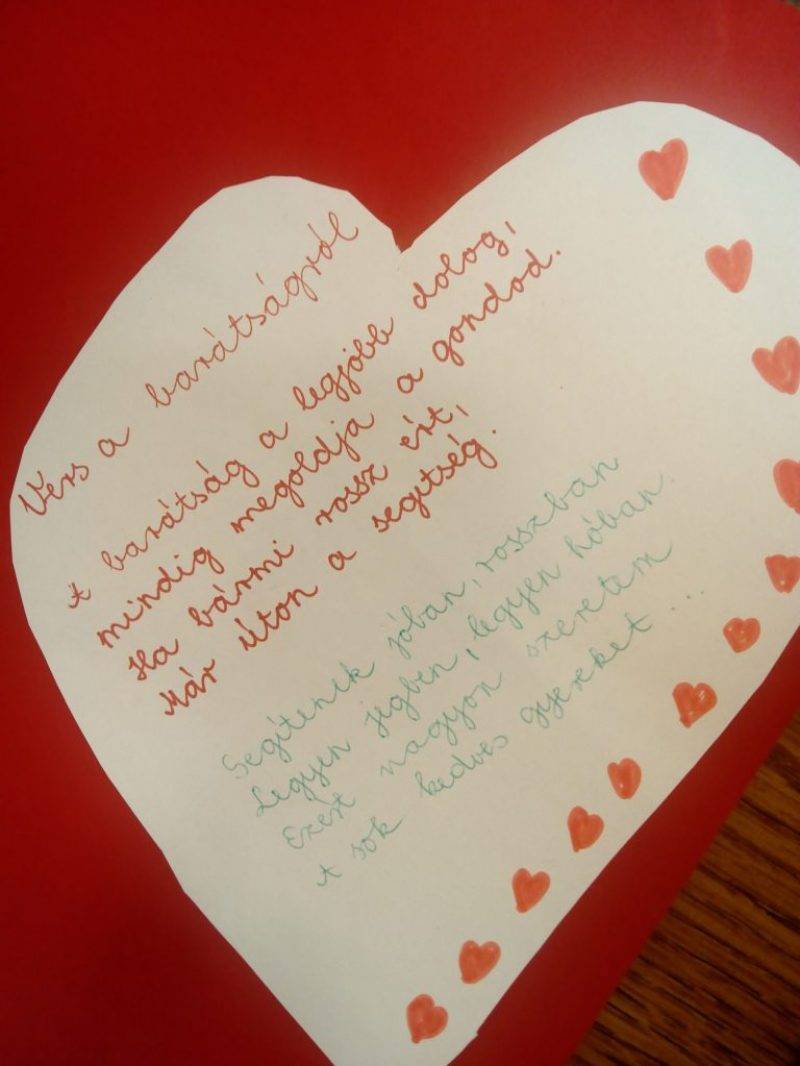 Vers a barátságról
A barátság a legjobb dolog,
mindig megoldja a gondod.
Ha bármi rossz ért,
Már úton a segítség.
Segítenek jóban, rosszban
Legyen jégben, legyen hóban.
Ezért nagyon szeretem
A sok kedves gyereket...